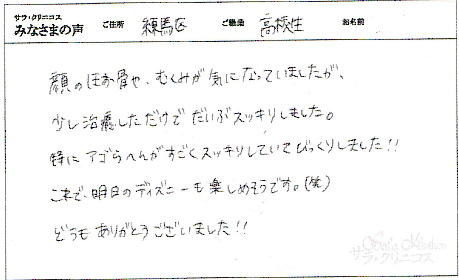 サラ・クリニコス
みなさまの声 ご住所 練馬区 ご職業 高校生 お名前
顔のほお骨や、むくみが気になっていましたが、
少し治癒しただけでだいぶスッキリしました。
特にアゴらへんがすごくスッキリしていてびっくりしました!!
これで、明日のディズニーも楽しめそうです。(笑)
どうもありがとうございました!!
サラ・クリニコス